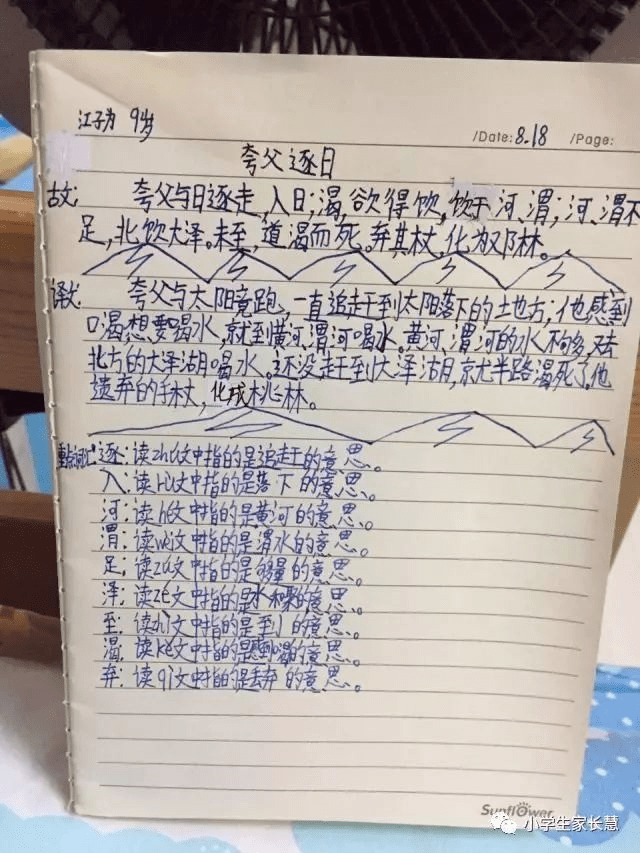 江子为 9岁
/Date: 8.18 /Page:
夸父逐日
古文: 夸父与日逐走,入日;渴,欲得饮,饮于河、渭;河、渭不
足,北饮大泽。未至,道渴而死。弃其杖,化为邓林。
译文: 夸父与太阳竞跑,一直追赶到太阳落下的土地方;他感到
口渴想要喝水,就到黄河、渭河喝水。黄河、渭河的水不够多,又去
北方的大泽湖喝水。还没走到大泽湖,就半路渴死了。他
遗弃的手杖,化成桃林。
重点词汇 逐:读zhú文中指的是追赶的意思。
入:读rù文中指的是落下的意思。
河:读hé文中指的是黄河的意思。
渭:读wèi文中指的是渭水的意思。
足:读zú文中指的是够量的意思。
泽:读zé文中指的是的意思。
至:读zhì文中指的是到的意思。
渴:读kě文中指的是感到口渴的意思。
弃:读qì文中指的是丢弃的意思。
Sunflower
小学生家长慧